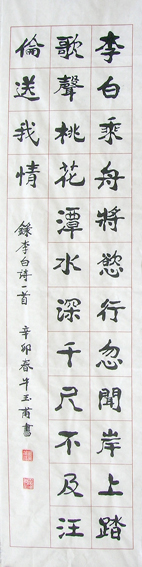 李白乘舟將慾行忽聞岸上踏
歌聲桃花潭水深千尺不及汪
倫送我情
錄李白诗一首 辛卯春牛玉甫書